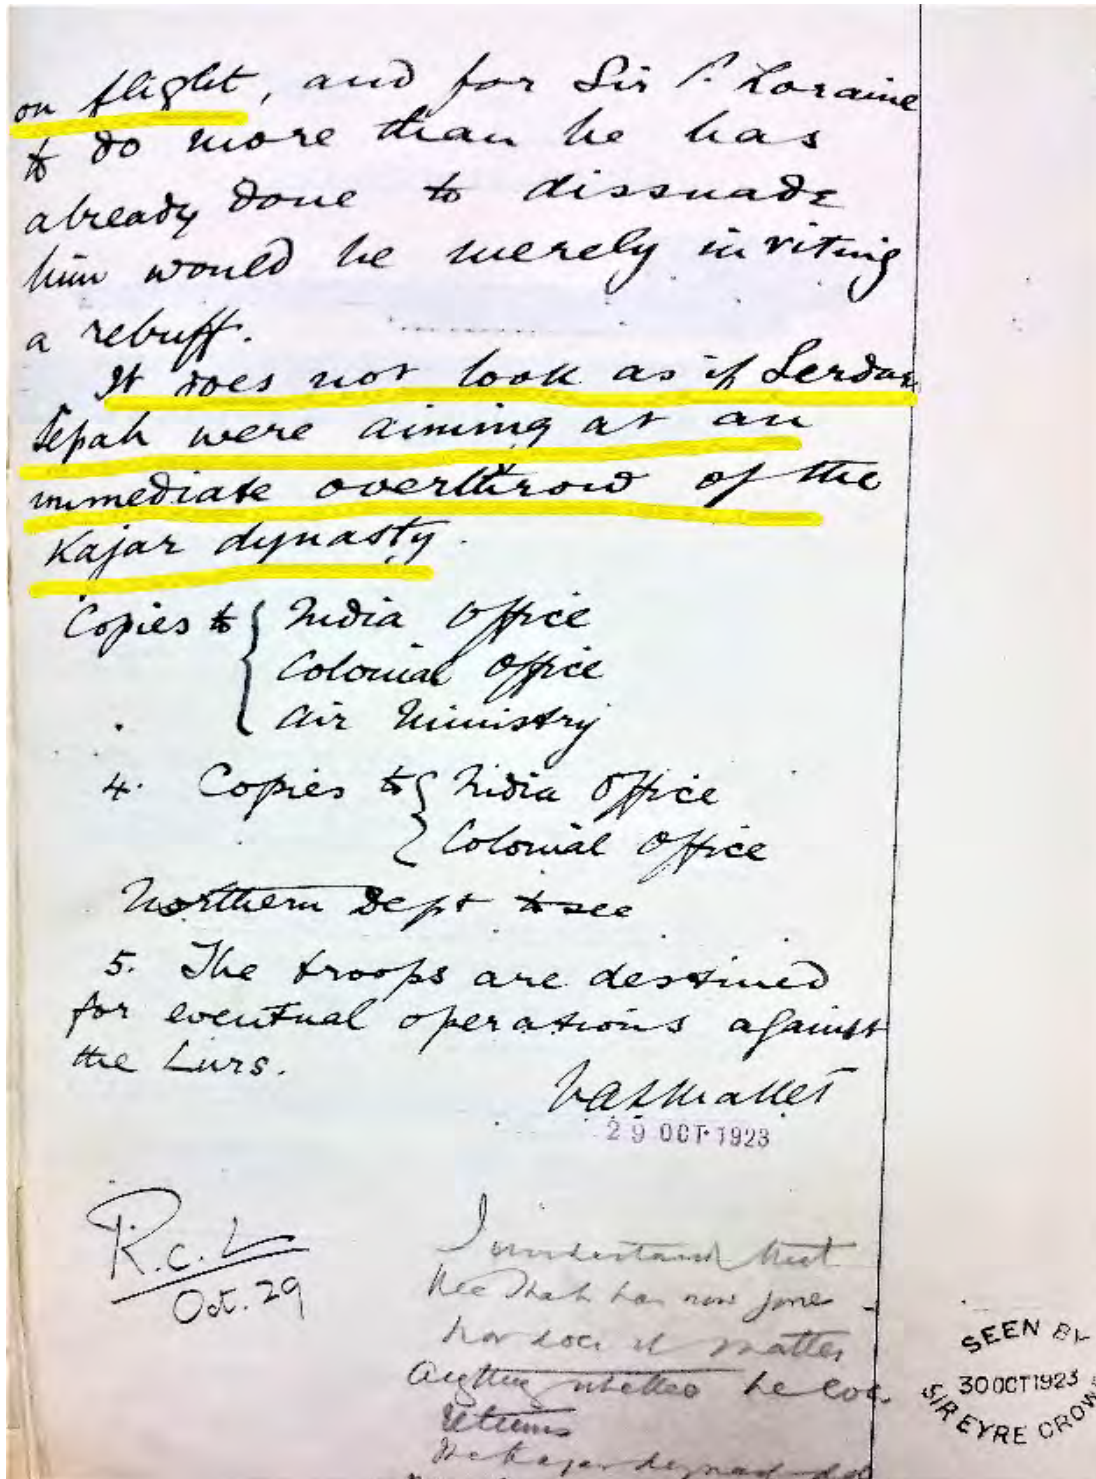 on flight, and for Sir P. Loraine
to do more than he has
already done to dissuade
him would be merely inviting
a rebuff.
It does not look as if Serdar
Sepah were aiming at an
immediate overthrow of the
Kajar dynasty.
Copies to { India Office
Colonial Office
Air Ministry
4. Copies to { India Office
Colonial Office
Northern Dept to see
5. The troops are destined
for eventual operations against
the Lurs.
VALMallet
29 OCT 1923
R.C.L
Oct. 29
I understand that
the Shah has now gone
nor does it matter
anything whether he
returns
SEEN BY
30 OCT 1923
SIR EYRE CROWE